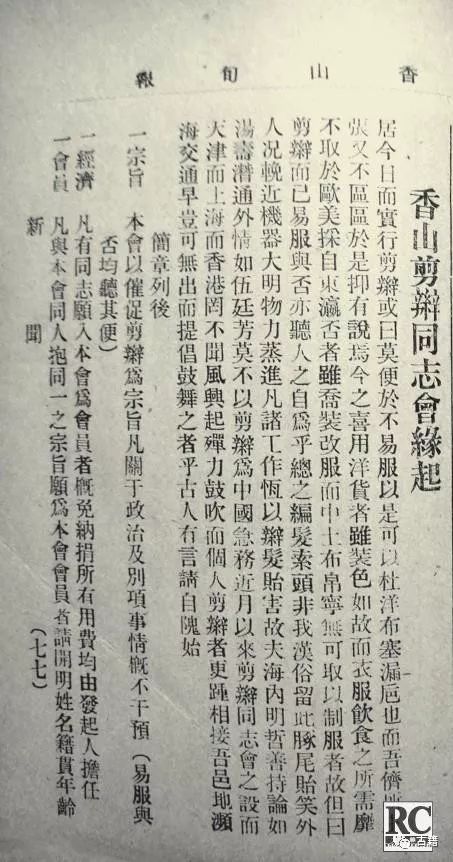 香山旬報
香山剪辮同志會緣起
居今日而實行剪辮或曰莫便於不易服以是可以杜洋布塞漏巵也而吾儕所
張又不區區於是抑有說焉今之喜用洋貨者雖裝色如故而衣服飲食之所需靡
不取於歐美採自東瀛否者雖喬裝改服而中土布帛寧無可取以制服者故但曰
剪辮而已易服與否亦聽人之自爲乎總之編髮索頭非我漢俗留此豚尾貽笑外
人况輓近機器大明物力蒸進凡諸工作恆以辮髮貽害故夫海內明哲善持論如
湯壽潛通外情如伍廷芳莫不以剪辮爲中國急務近月以來剪辮同志會之設而
天津而上海而香港罔不聞風興起殫力鼓吹而個人剪辮者更踵相接吾邑地瀕
海交通早豈可無出而提倡鼓舞之者乎古人有言請自隗始
簡章列後
一宗旨 本會以催促剪辮爲宗旨凡關于政治及別項事情槪不干預(易服與
否均聽其便)
一經濟 凡有同志願入本會爲會員者槪免納捐所有用費均由發起人擔任
一會員 凡與本會同人抱同一之宗旨願爲本會會員者請開明姓名籍貫年齡
新聞 (七七)
RC
古籍